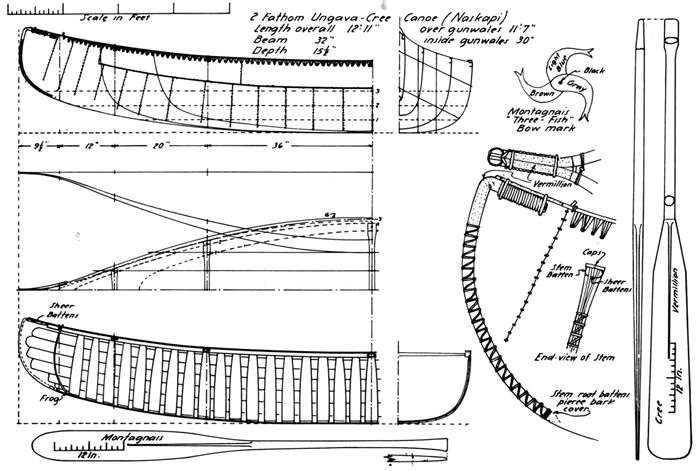 Scale in Feet
2 Fathom Ungava-Cree Canoe (Naskapi)
Length overall 12'11" over gunwales 11'7"
Beam 32" inside gunwales 30"
Depth 15½"
3
2
1
9½" 12" 20" 36"
Light Blue
Black
Brown
Gray
Montagnais
"Three-Fish"
Bow mark
Vermillion
Caps
Stem
Battens
Sheer
Battens
End-view of Stem
Stem root battens
pierce bark
cover
Sheer
Battens
Frog
Montagnais
12 In.
Vermillion
Cree
12 In.